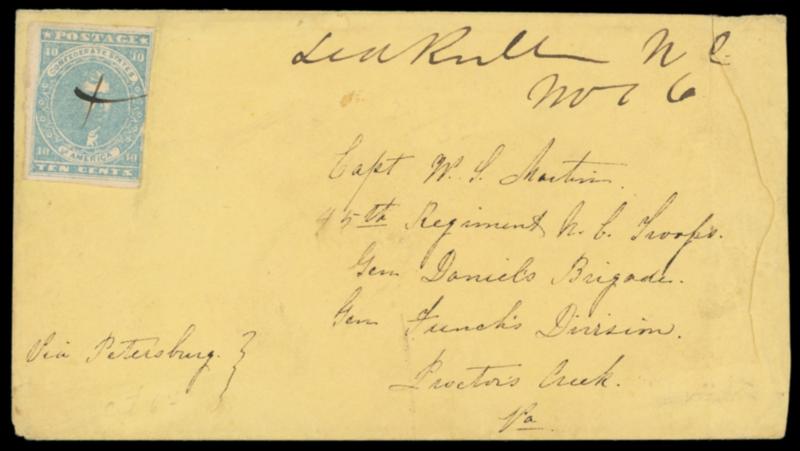 POSTAGE
10 10
CONFEDERATE STATES
AMERICA
10 10
TEN CENTS
N C
Nov 6
Capt W. S. Martin.
45th Regiment N. C. Troops.
Gen Daniel's Brigade.
Gen French's Division.
Proctors Creek.
Va.
Via Petersburg. }